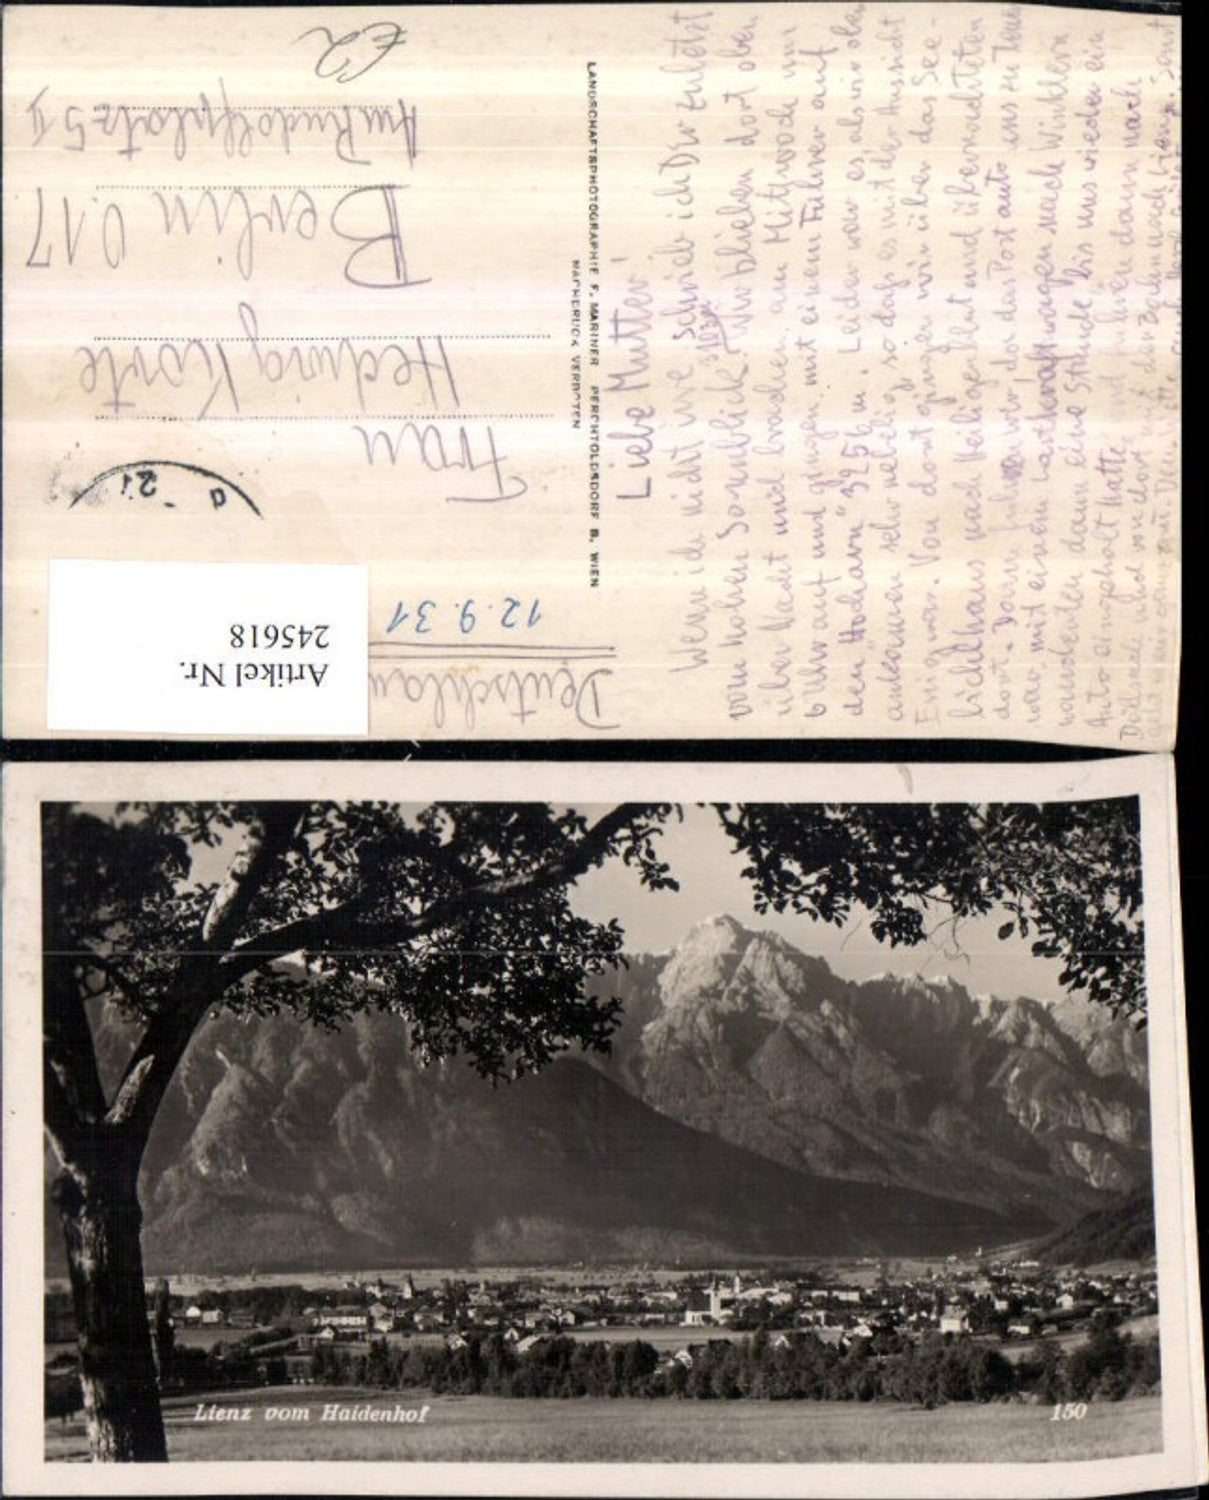 Liebe Mutter!
Wenn ich nicht irre schrieb ich Dir zuletzt
vom hohen Sonnblick. Wir blieben dort oben
über Nacht und brachen am Mittwoch um
6 Uhr auf und gingen mit einem Führer auf
den "Hocharn" 325 m. Leider war es als wir oben
ankamen sehr nebelig, sodaß es mit der Aussicht
Essig war. Von dort gingen wir über das See-
bichlhaus nach Heiligenblut und übernachteten
dort. Dann fuhren wir, da das Postauto uns zu
war mit einem Lastkraftwagen nach Winklern
wanderten dann eine Stunde bis uns wieder ein
Auto eingeholt hatte und fuhren dann nach
Döllsach und von dort mit der Bahn nach Lienz. Sonst
LANDSCHAFTSPHOTOGRAPHIE F. MARINER PERCHTOLDSDORF B. WIEN
NACHDRUCK VERBOTEN
Deutschlan
12.9.31
Frau
Hedwig Korte
Berlin O.17
Am Rudolfplatz 5 II
€2
21
Artikel Nr.
245618
Lienz vom Haidenhof
150